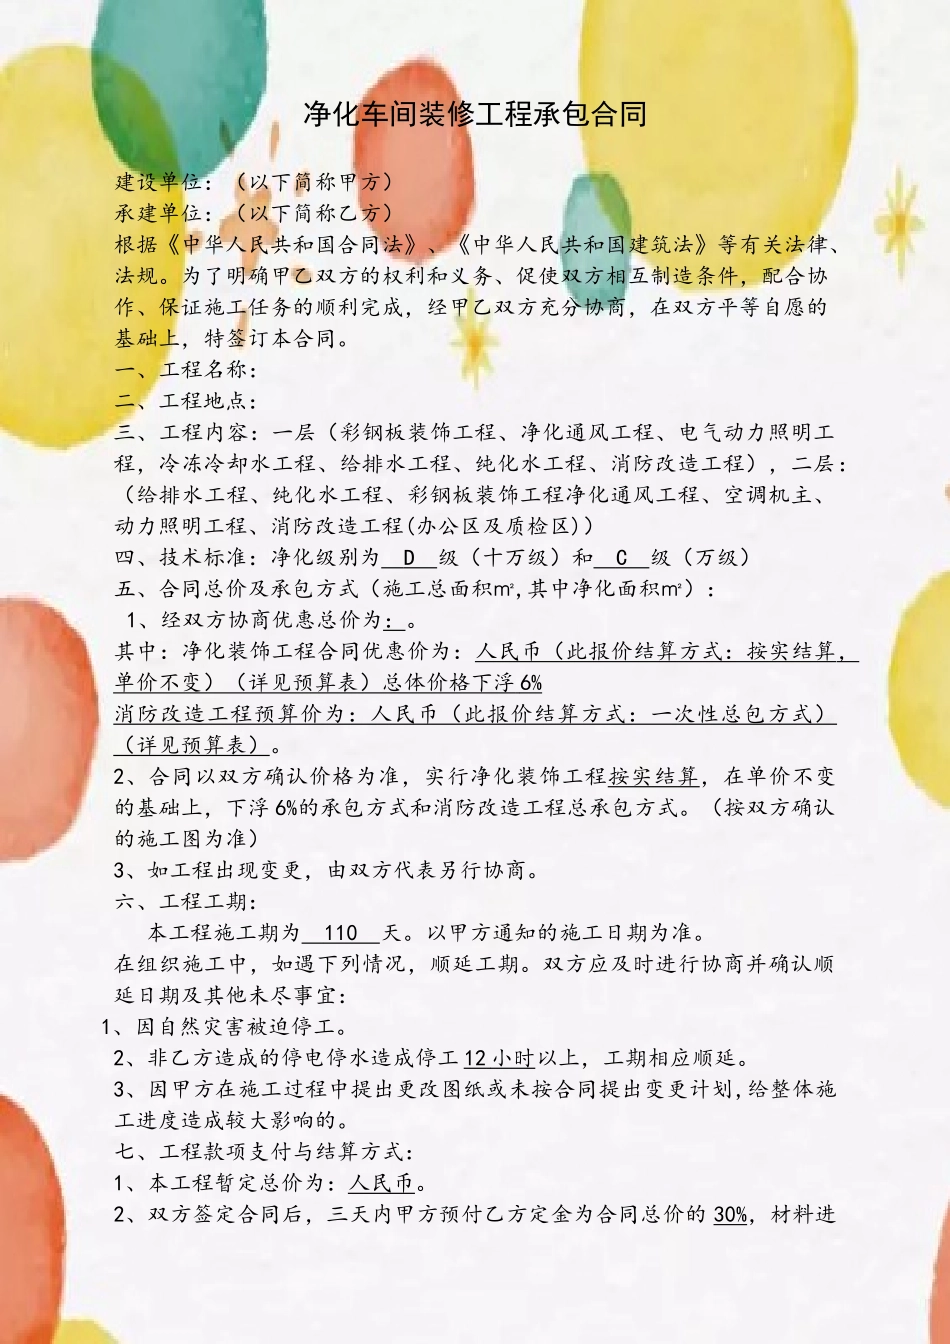 净化车间装修工程承包合同
建设单位：（以下简称甲方）
承建单位：（以下简称乙方）
根据《中华人民共和国合同法》、《中华人民共和国建筑法》等有关法律、
法规。为了明确甲乙双方的权利和义务、促使双方相互制造条件，配合协
作、保证施工任务的顺利完成，经甲乙双方充分协商，在双方平等自愿的
基础上，特签订本合同。
一、工程名称：
二、工程地点：
三、工程内容：一层（彩钢板装饰工程、净化通风工程、电气动力照明工
程，冷冻冷却水工程、给排水工程、纯化水工程、消防改造工程），二层：
（给排水工程、纯化水工程、彩钢板装饰工程净化通风工程、空调机主、
动力照明工程、消防改造工程(办公区及质检区)）
四、技术标准：净化级别为 D 级（十万级）和 C 级（万级）
五、合同总价及承包方式（施工总面积㎡,其中净化面积㎡）：
1、经双方协商优惠总价为：。
其中：净化装饰工程合同优惠价为：人民币（此报价结算方式：按实结算，
单价不变）（详见预算表）总体价格下浮 6%
消防改造工程预算价为：人民币（此报价结算方式：一次性总包方式）
（详见预算表）。
2、合同以双方确认价格为准，实行净化装饰工程按实结算，在单价不变
的基础上，下浮 6%的承包方式和消防改造工程总承包方式。（按双方确认
的施工图为准）
3、如工程出现变更，由双方代表另行协商。
六、工程工期：
本工程施工期为 110 天。以甲方通知的施工日期为准。
在组织施工中，如遇下列情况，顺延工期。双方应及时进行协商并确认顺
延日期及其他未尽事宜：
1、因自然灾害被迫停工。
2、非乙方造成的停电停水造成停工 12 小时以上，工期相应顺延。
3、因甲方在施工过程中提出更改图纸或未按合同提出变更计划,给整体施
工进度造成较大影响的。
七、工程款项支付与结算方式：
1、本工程暂定总价为：人民币。
2、双方签定合同后，三天内甲方预付乙方定金为合同总价的 30%，材料进